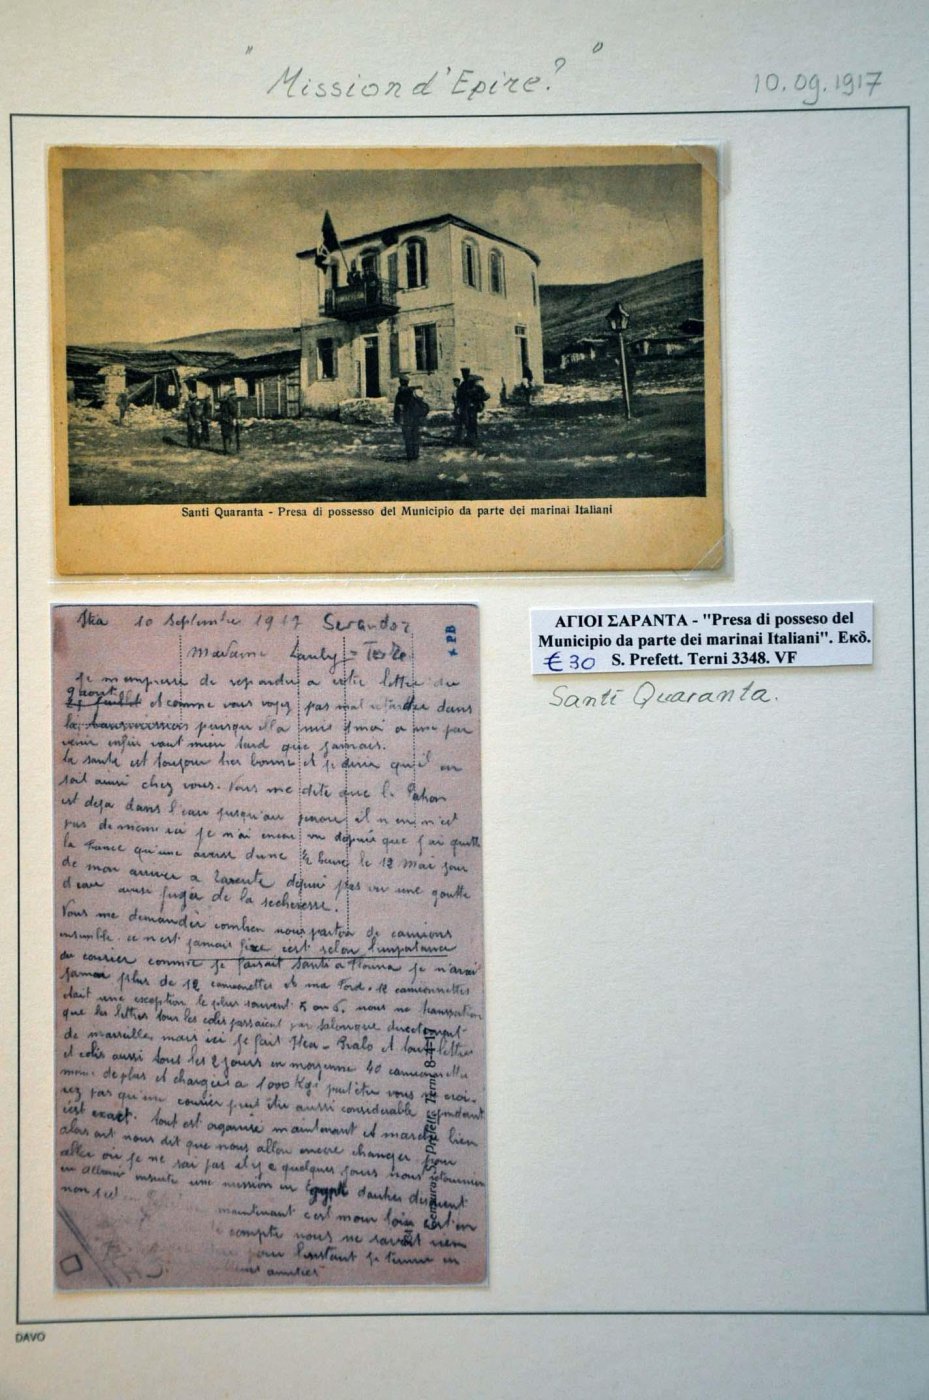 "Mission d'Epire?" 10.09.1917
Santi Quaranta - Presa di possesso del Municipio da parte dei marinai Italiani
ΑΓΙΟΙ ΣΑΡΑΝΤΑ - "Presa di posseso del
Municipio da parte dei marinai Italiani". Εκδ.
€30 S. Prefett. Terni 3348. VF
Santi Quaranta.
Itea 10 Septembre 1917
Madame
Je m'empresse de repondre a votre lettre du
9 aout et comme vous voyez pas mal retardée dans
la puisque il a mis 1 moi a me par
venir enfin vaut mieu tard que jamais.
la santé est toujour tres bonne et je désire qu'il en
soit ainsi chez vous. Vous me dite que le
est deja dans l'eau jusqu'au il n'en n'est
pas de meme ici je n'ai encore vu depuis que j'ai quitté
la France qu'une averse d'une ½ heure le 12 Mai jour
de mon arriver a Tarente depuis pas vu une goutte
d'eau aussi juger de la secheresse.
Vous me demander combien nous parton de camions
ensemble. ce n'est jamais fixe c'est selon l'importance
du courier comme je faisait Santi a Florina je n'avai
jamai plus de 12 camionettes et ma Ford. 12 camionnettes
etait une exception le plus souvent 5 ou 6. nous ne transportion
que les lettres tous les colis passaient par Salonique directement
de Marseille, mais ici je fait Itea - Bralo et tout lettres
et colis aussi tous les 2 jours en moyenne 40 camionnettes
meme de plus et chargées a 1000 Kgs peut être vous ne croi-
rez pas qu'une courier peut être aussi considerable pendant
c'est exact. tout est organisé maintenant et marche bien
alors on nous dit que nous allon encore changer pour
aller où je ne sai pas il y a quelques jours nous
en Albanie ensuite une mission en Egypte d'autres disaient
non c'est
maintenant c'est mon loin c'est en
compte nous ne savont rien
pour l'instant je termine en
amitiés
8-4-17
DAVO